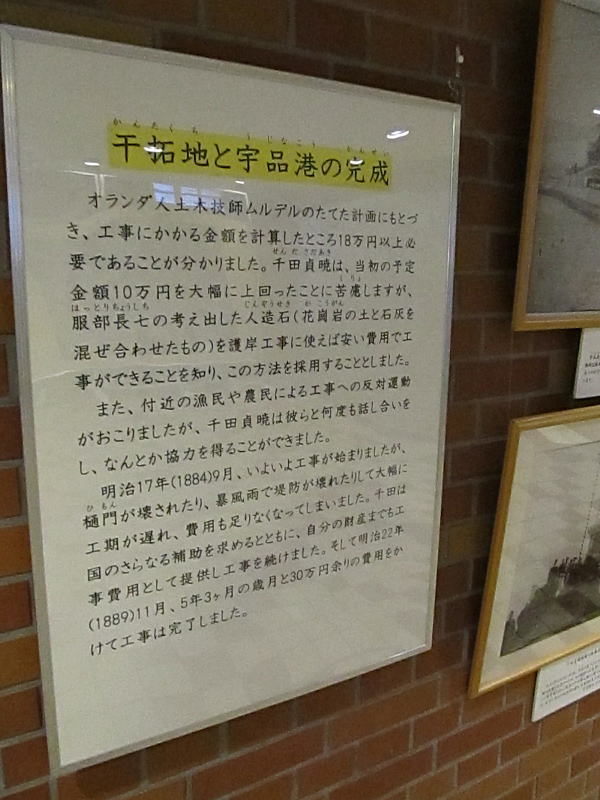 かんたくち うじなこう かんせい
干拓地と宇品港の完成
オランダ人土木技師ムルデルのたてた計画にもとづ
き、工事にかかる金額を計算したところ18万円以上必
要であることが分かりました。千田貞暁は、当初の予定
せんださだあき
金額10万円を大幅に上回ったことに苦慮しますが、
くりょ
服部長七の考え出した人造石(花崗岩の土と石灰を
はっとりちょうしち じんぞうせき かこうがん
混ぜ合わせたもの)を護岸工事に使えば安い費用で工
事ができることを知り、この方法を採用することとしました。
また、付近の漁民や農民による工事への反対運動
がおこりましたが、千田貞暁は彼らと何度も話し合いを
し、なんとか協力を得ることができました。
明治17年(1884)9月、いよいよ工事が始まりましたが、
樋門が壊されたり、暴風雨で堤防が壊れたりして大幅に
ひもん
工期が遅れ、費用も足りなくなってしまいました。千田は
国のさらなる補助を求めるとともに、自分の財産までも工
事費用として提供し工事を続けました。そして明治22年
(1889)11月、5年3ヶ月の歳月と30万円余りの費用をか
けて工事は完了しました。